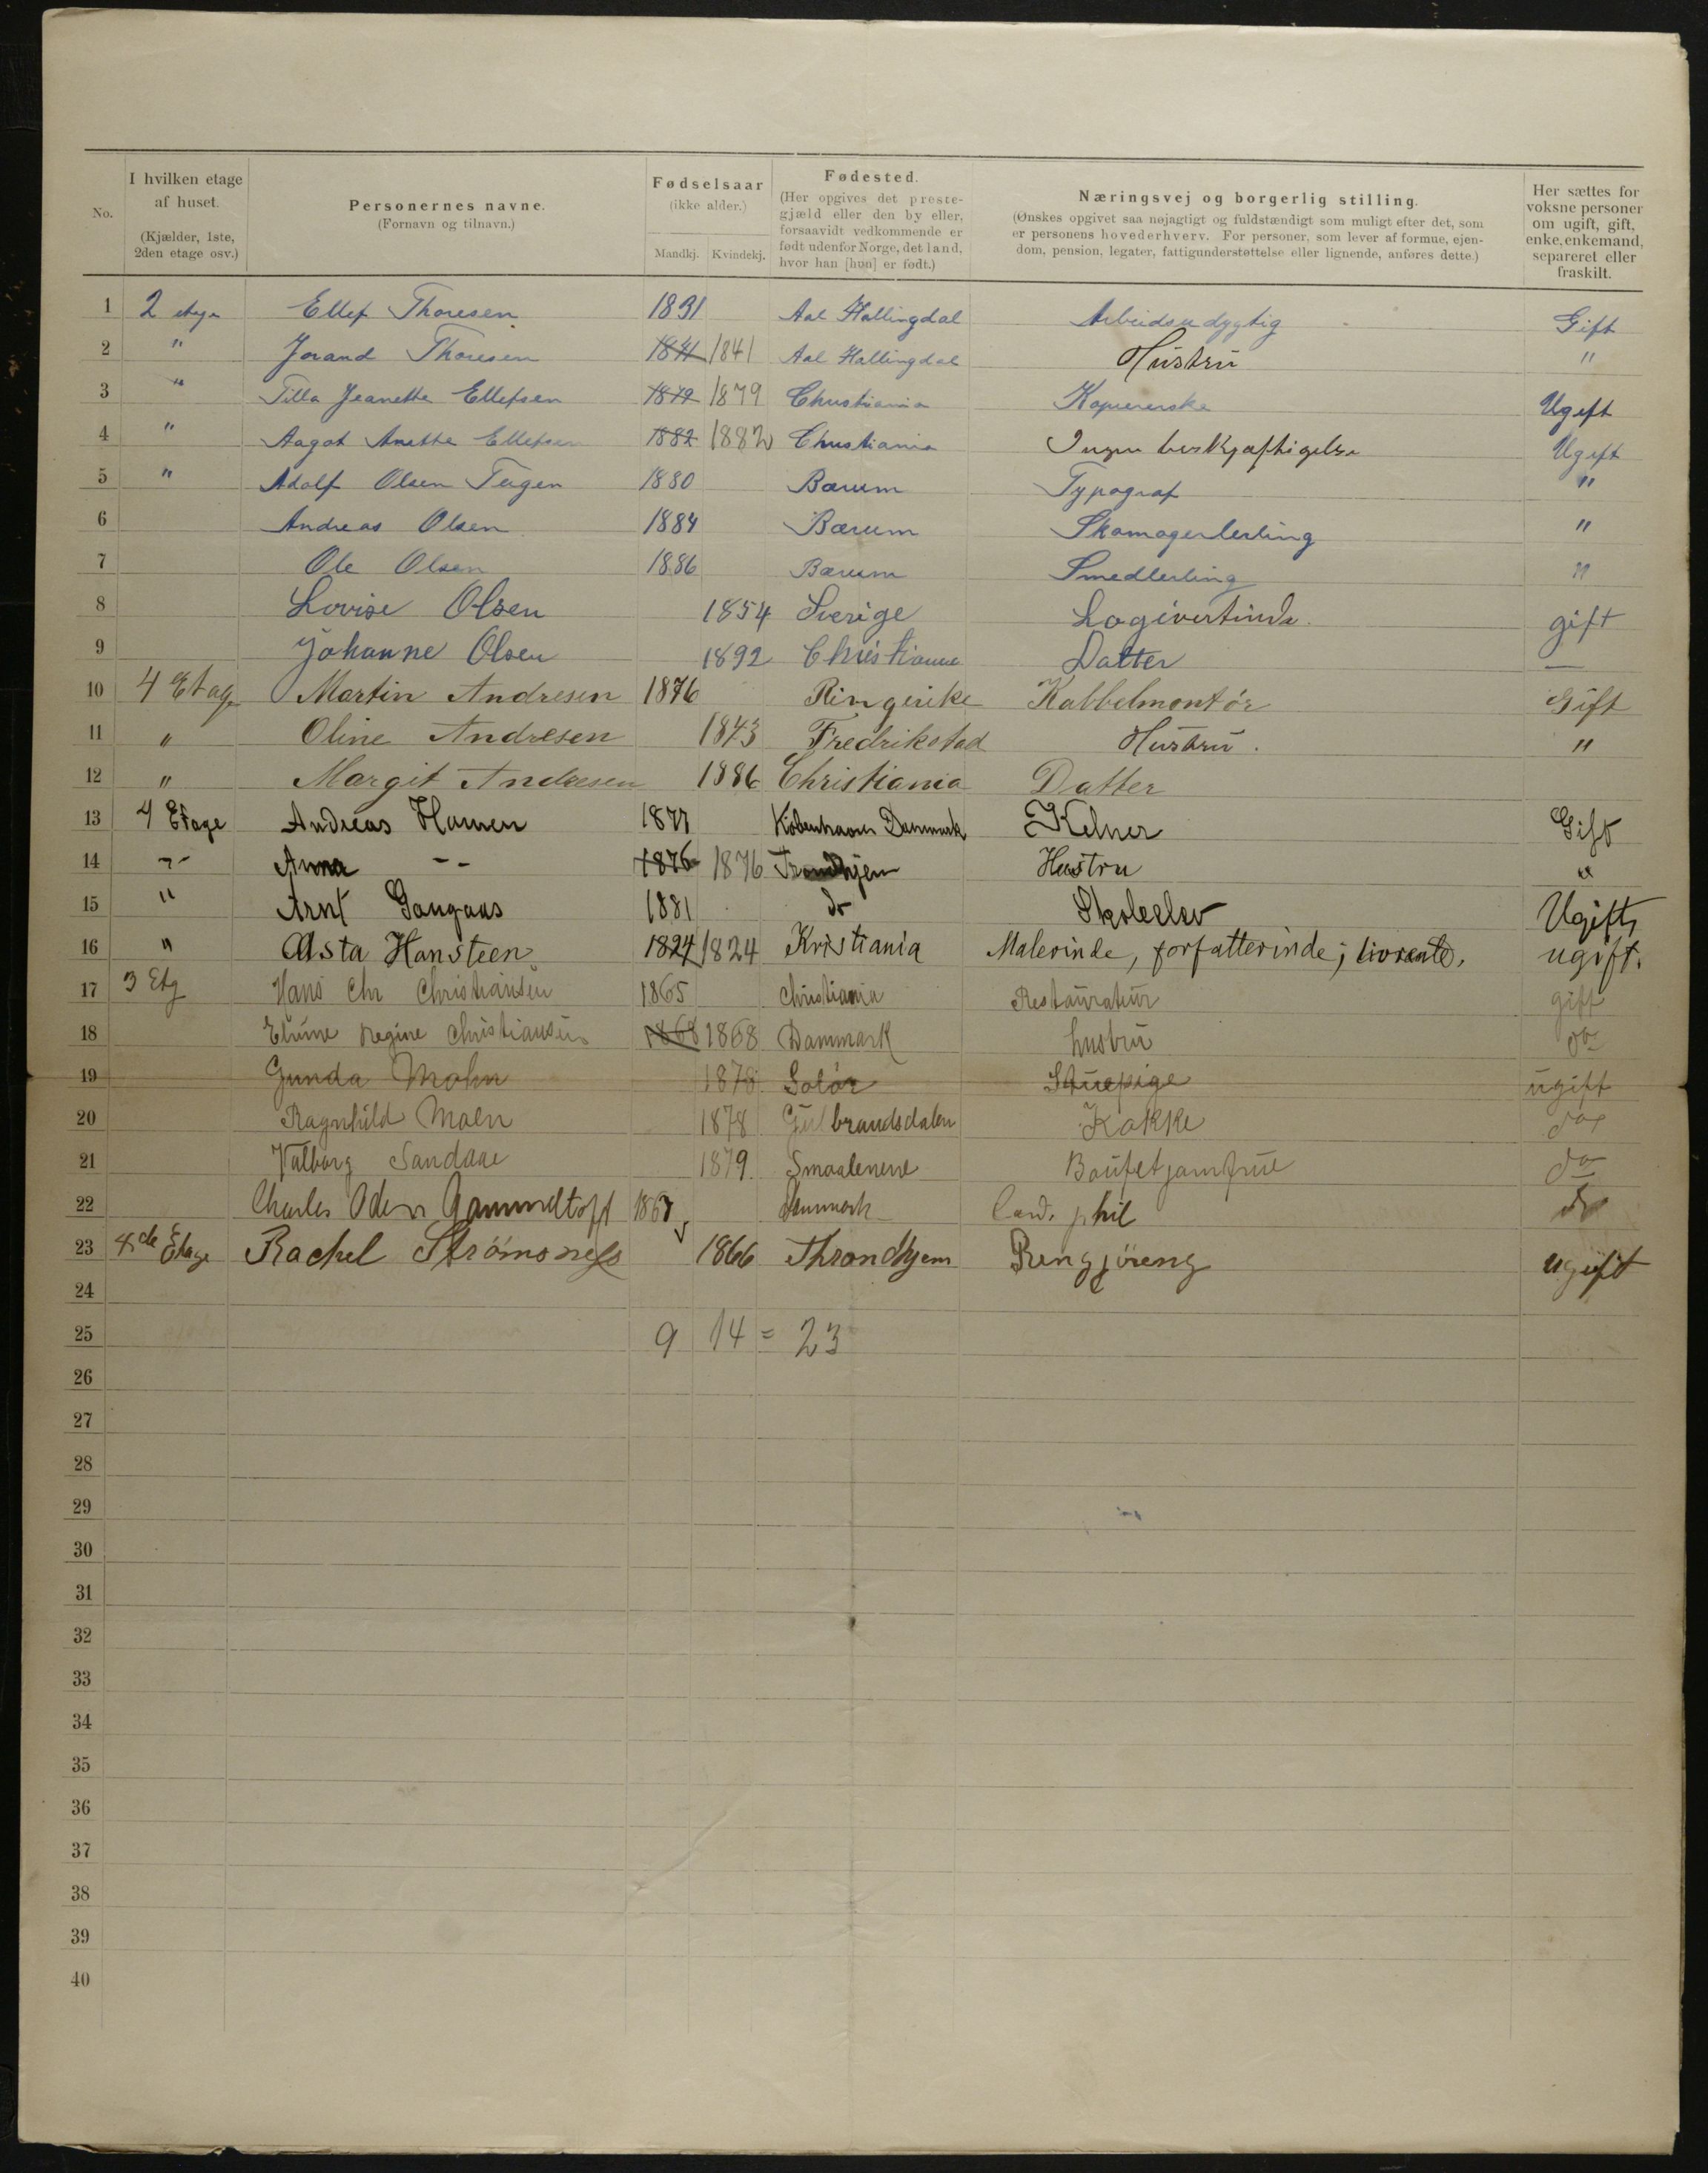 No.
I hvilken etage af huset. (Kjælder, 1ste, 2den etage osv.)
Personernes navne. (Fornavn og tilnavn.)
Fødselsaar (ikke alder.)
Mandkj. Kvindekj.
Fødested. (Her opgives det prestegjæld eller den by eller, forsaavidt vedkommende er født udenfor Norge, det land, hvor han [hun] er født.)
Næringsvej og borgerlig stilling. (Ønskes opgivet saa nøjagtigt og fuldstændigt som muligt efter det, som er personens hovederhverv. For personer, som lever af formue, ejendom, pension, legater, fattigunderstøttelse eller lignende, anføres dette.)
Her sættes for voksne personer om ugift, gift, enke, enkemand, separeret eller fraskilt.
1 2 etage Ellef Thoresen 1831 Aal Hallingdal Arbeidsudygtig Gift
2 " Jorand Thoresen 1841 1841 Aal Hallingdal Hustru "
3 " Tilla Jeanette Ellefsen 1879 1879 Christiania Kopiererske Ugift
4 " Aagot Anette Ellefsen 1882 1882 Christiania Ingen beskjæftigelse Ugift
5 " Adolf Olsen Tagen 1880 Bærum Typograf "
6 Andreas Olsen 1884 Bærum Skomagerlerling "
7 Ole Olsen 1886 Bærum Smedlerling "
8 Lovise Olsen 1854 Sverige Logivertinde. gift
9 Johanne Olsen 1892 Christiania Datter —
10 4 Etage Martin Andresen 1876 Ringerike Kabbelmontør Gift
11 " Oline Andresen 1843 Fredrikstad Hustru. "
12 " Margit Andresen 1886 Christiania Datter
13 4 Etage Andreas Hansen 1877 København Danmark Kelner Gift
14 " Anna -- 1876 1876 Trondhjem Hustru "
15 " Arnt Gangaas 1881 do Skoleelev Ugift
16 " Asta Hansteen 1824 1824 Kristiania Malerinde, forfatterinde; livrente. ugift.
17 3 Etg Hans Chr Christiansen 1865 Christiania Restauratør gift
18 Regine Christiansen 1868 1868 Danmark hustru do
19 Gunda Mohn 1878 Solør Stuepige ugift
20 Ragnhild Moen 1878 Gulbrandsdalen Kokke do
21 Valborg Sandaae 1879. Smaalenene Boufetjomfrue do
22 Charles Oden 1867 Danmark Cand. phil do
23 4de Etage Rachel Strømsness 1866 Throndhjem Rengjøreng ugift
24
25 9 14 = 23
26
27
28
29
30
31
32
33
34
35
36
37
38
39
40